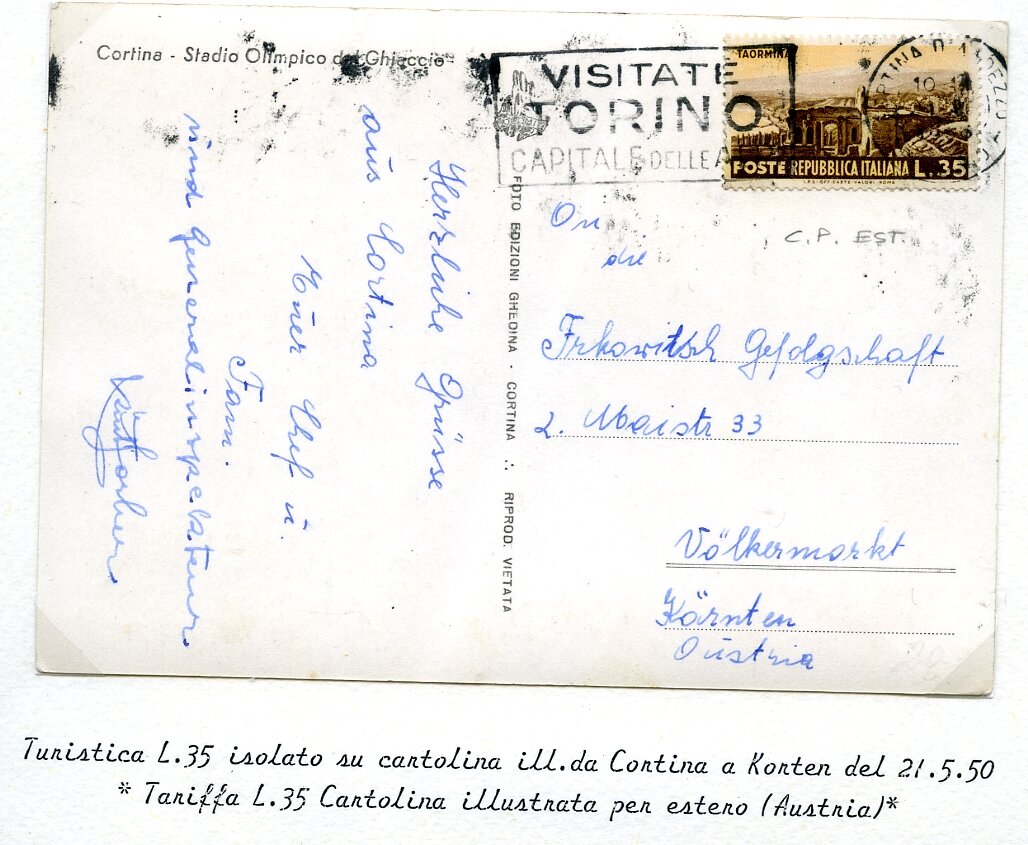 Cortina - Stadio Olimpico del Ghiaccio
VISITATE
TORINO
CAPITALE DELLE A
TAORMINA
POSTE REPUBBLICA ITALIANA L.35
I.P.S.-OFF.CARTE-VALORI-ROMA
TINA D'AMPEZZO
10
C.P. EST.
Herzliche Grüsse
aus Cortina
Euer Chef u.
Fam.
und Generalinspekteur
FOTO EDIZIONI GHEDINA - CORTINA ∴ RIPROD. VIETATA
An
die
Frkowitsch Gefolgschaft
2. Maistr 33
Völkermarkt
Kärnten
Austria
Turistica L.35 isolato su cartolina ill.da Cortina a Korten del 21.5.50
* Tariffa L.35 Cartolina illustrata per estero (Austria)*